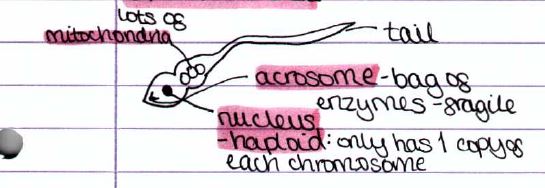 lots of
mitochondria
tail
acrosome - bag of
enzymes - fragile
nucleus
- haploid: only has 1 copy of
each chromosome